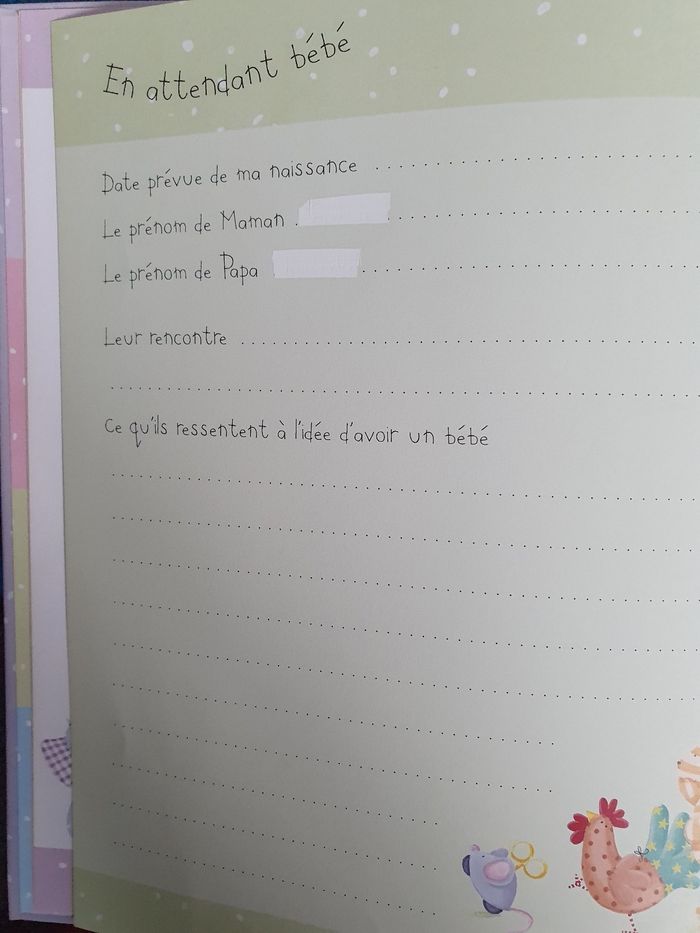 En attendant bébé
Date prévue de ma naissance
Le prénom de Maman
Le prénom de Papa
Leur rencontre
Ce qu'ils ressentent à l'idée d'avoir un bébé